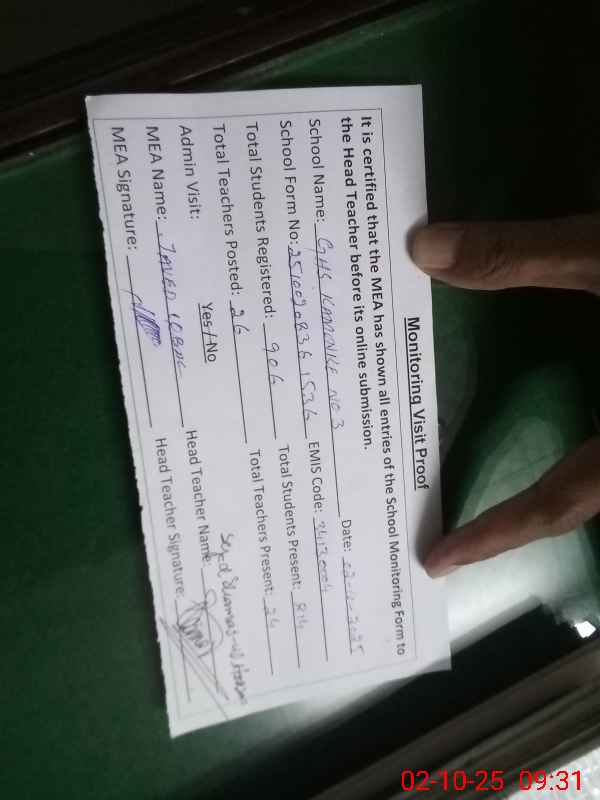 Monitoring Visit Proof
It is certified that the MEA has shown all entries of the School Monitoring Form to
the Head Teacher before its online submission.
School Name: GHS KAMONKE NO 3 Date: 02-10-2025
School Form No: EMIS Code:
Total Students Registered: 906 Total Students Present: 814
Total Teachers Posted: 26 Total Teachers Present: 24
Admin Visit: Yes / No
MEA Name: JAVED IQBAL Head Teacher Name: Syed
MEA Signature: Head Teacher Signature:
02-10-25 09:31